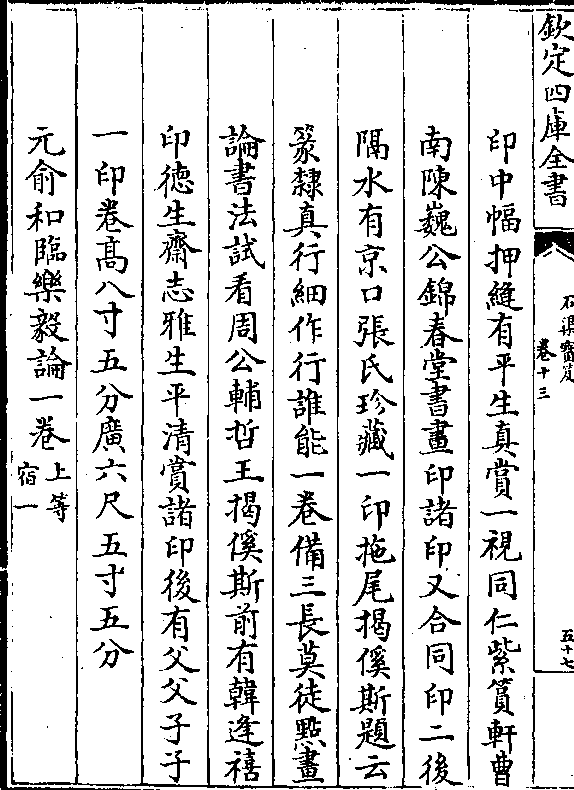 欽定四庫全書
石渠寶笈
卷十三
五十七
印中幅押縫有平生真賞一視同仁紫篔軒曹
南陳巍公錦春堂書畫印諸印又合同印二後
隔水有京口張氏珍藏一印拖尾揭傒斯題云
篆隸真行細作行誰能一卷備三長莫徒㸃畫
論書法試看周公輔哲王揭傒斯前有韓逢禧
印德生齋志雅生平清賞諸印後有父父子子
一印卷髙八寸五分廣六尺五寸五分
元俞和臨樂毅論一卷上等
宿一